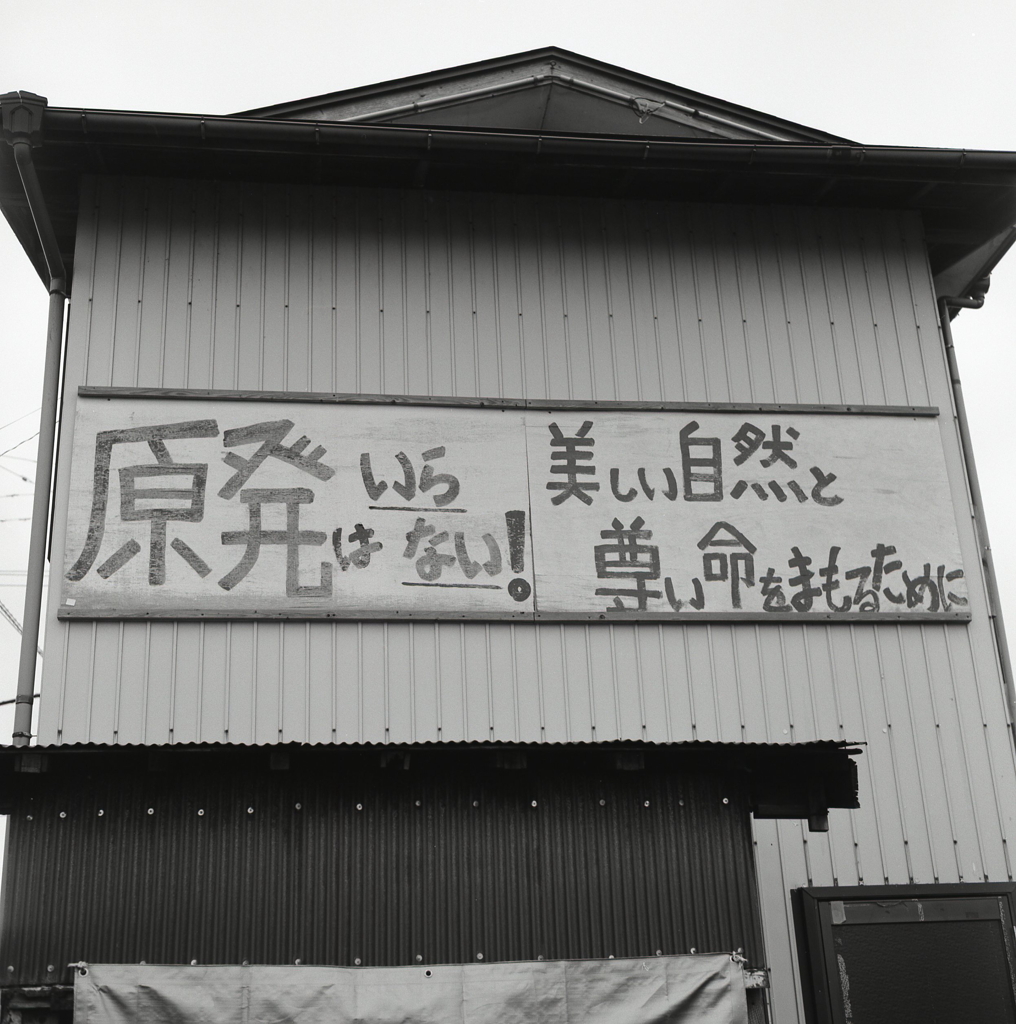 原発はいらない!
美しい自然と
尊い命をまもるために